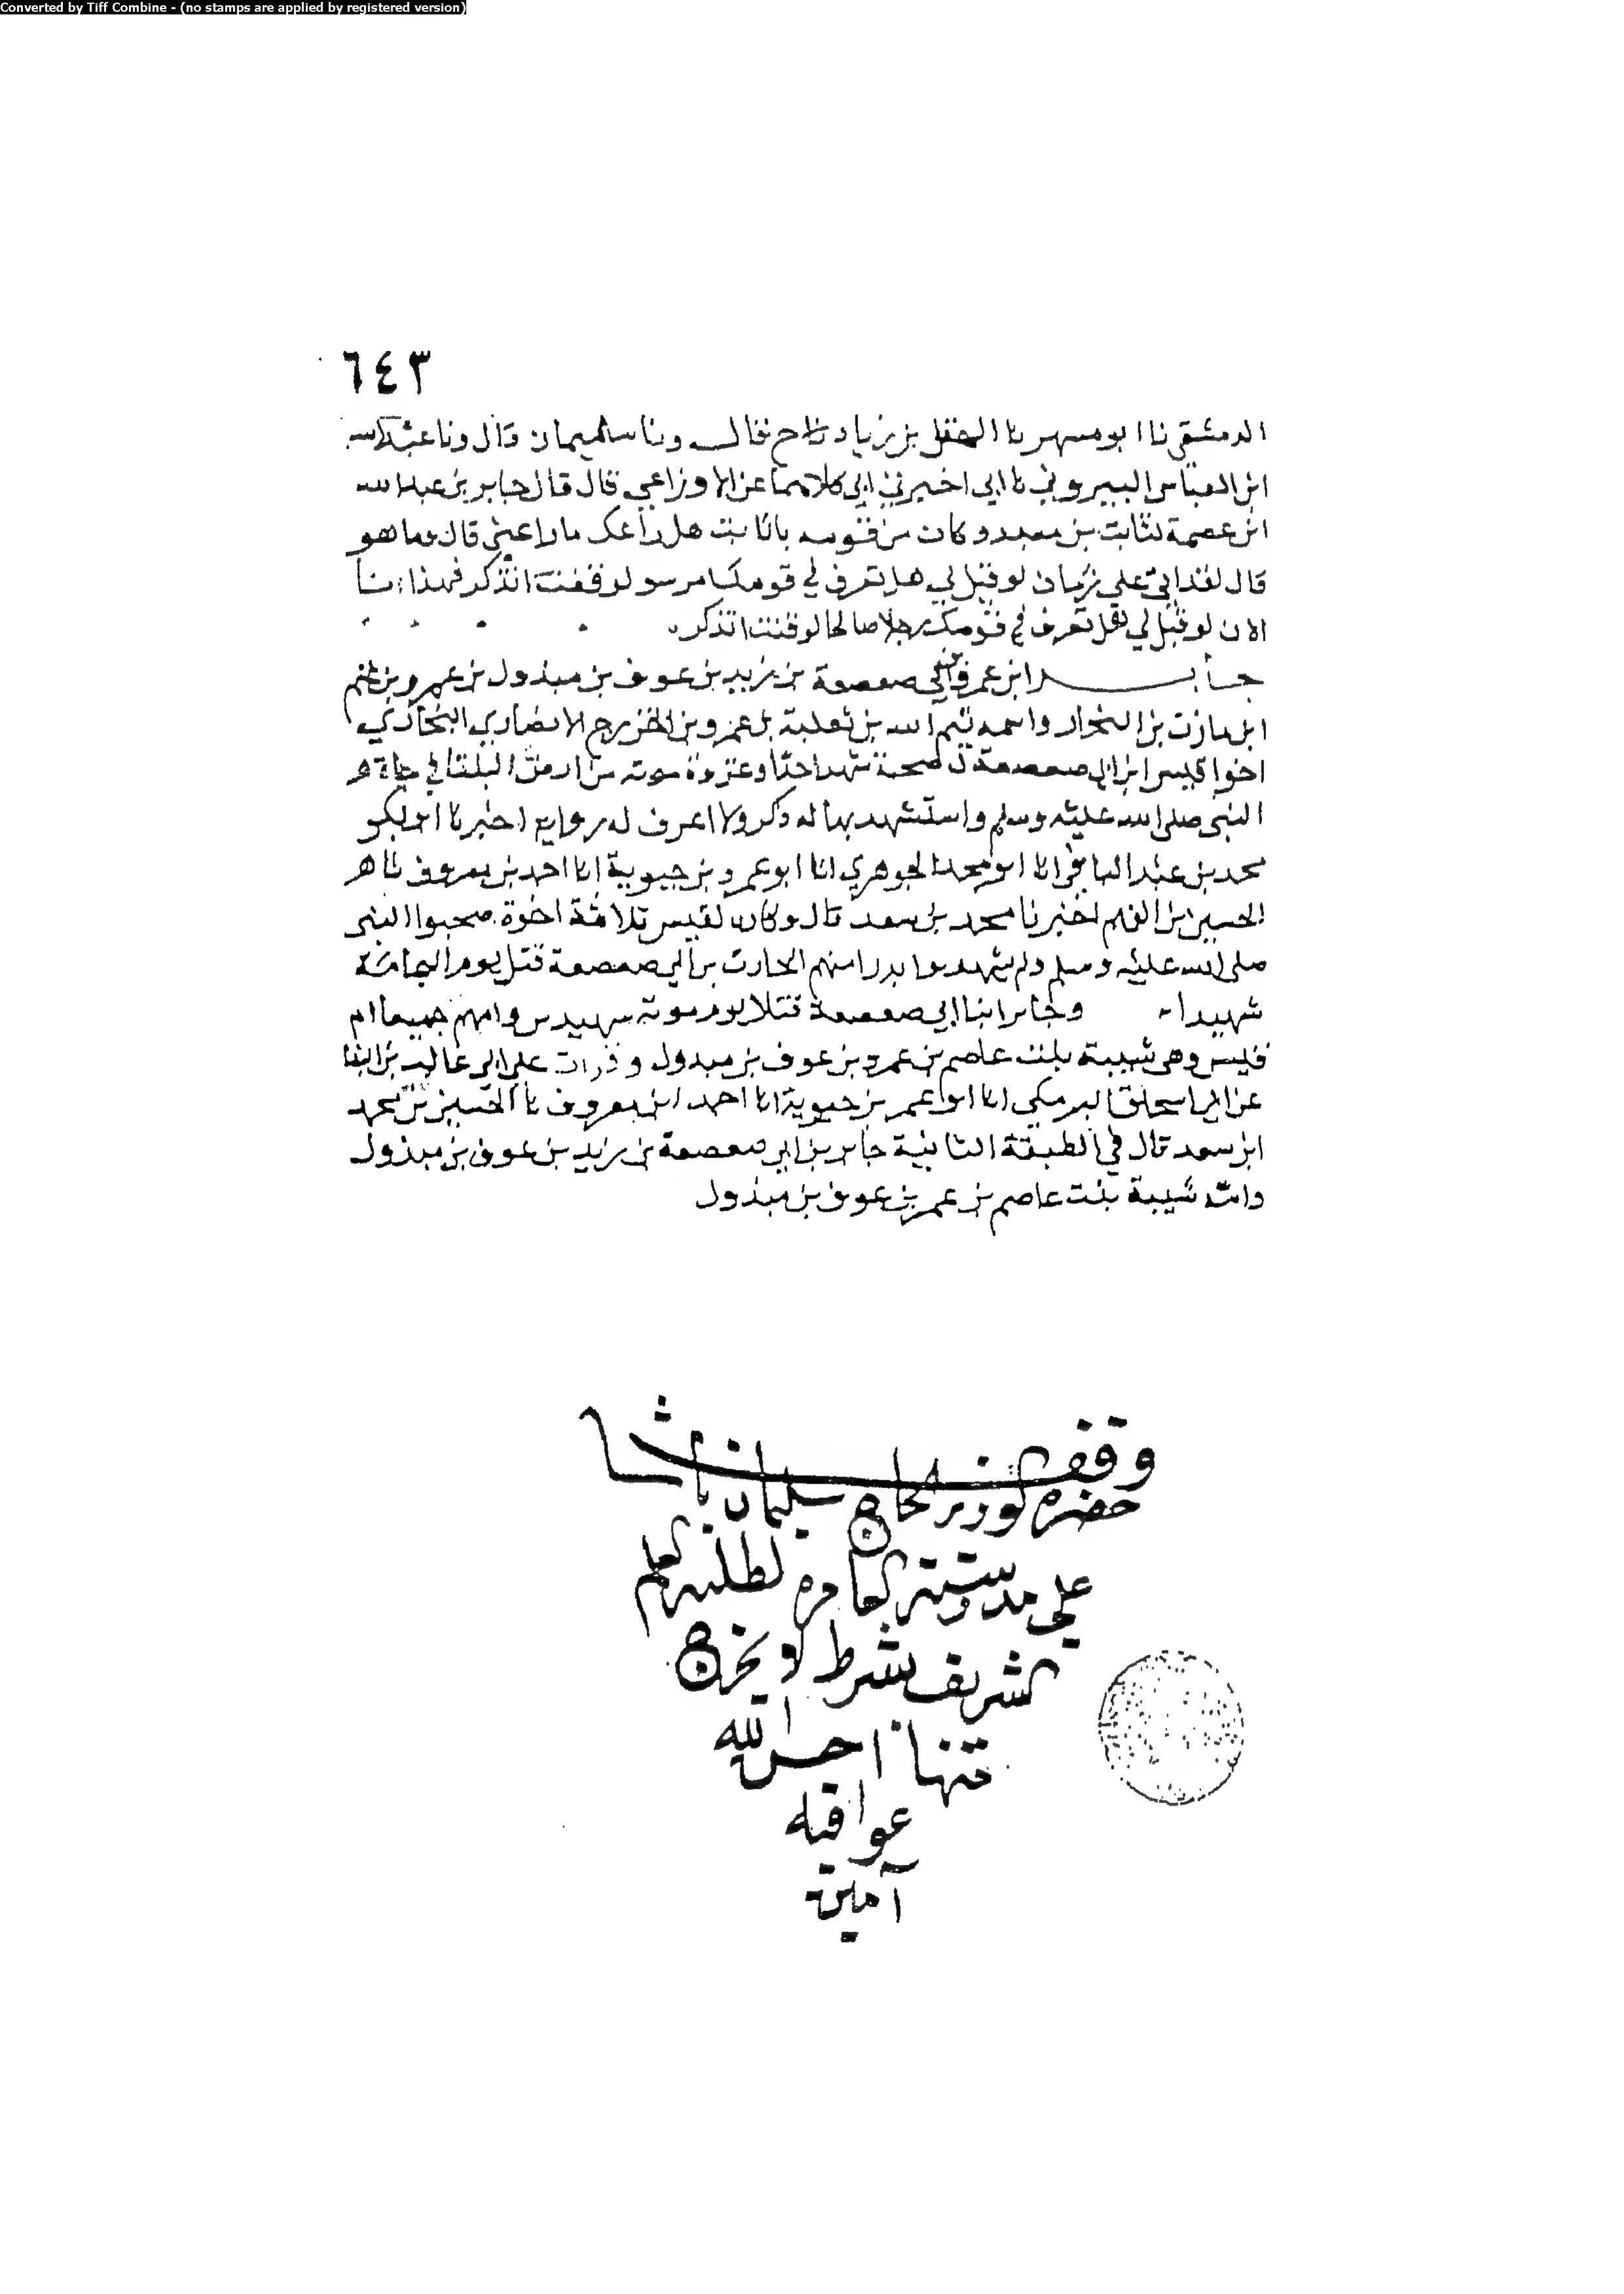 Converted by Tiff Combine - (no stamps are applied by registered version)
٦٤٣
الدمشقي نا ابو مسهر نا الهقل بن زياد ح قال ونا سليمان قال ونا
ابن العباس البيروتي نا ابي اخبرني ابي كلاهما عن الاوزاعي قال قال جابر بن عبد الله
ابن عصمة لثابت بن معبد وكان من قومه يا ثابت هل راعك ما راعني قال وما هو
قال لقد اتى علي زمان لو قيل لي هل تعرف في قومك لوقفت اتذكر فهذا انا
الان لو قيل لي هل تعرف في قومك رجلا صالحا لوقفت اتذكر
جابر ابن عمرو ابي صعصعة بن زيد بن عوف بن مبذول بن عمرو بن غنم
ابن مازن بن النجار واسمه تيم الله بن ثعلبة بن عمرو بن الخزرج الانصاري النجاري
اخوا قيس ابن ابي صعصعة له صحبة شهد احدا وغزوة موته من ارض البلقا في حياة
النبي صلى الله عليه وسلم واستشهد بها له ذكر ولا اعرف له رواية اخبرنا ابو بكر
محمد بن عبد الباقي انا ابو محمد الجوهري انا ابو عمرو بن حيوية انا احمد بن معروف نا
الحسين بن الفهم اخبرنا محمد بن سعد قال وكان لقيس ثلاثة اخوة صحبوا النبي
صلى الله عليه وسلم ولم يشهدوا بدرا منهم الحارث بن ابي صعصعة قتل يوم اليمامة
شهيدا وجابر ابنا ابي صعصعة قتلا يوم موته شهيدين وامهم جميعا ام
قيس وهي شيبة بنت عاصم بن عمرو بن عوف بن مبذول وقرات على ابي غالب بن البنا
عن ابي اسحاق البرمكي انا ابوا عمر بن حيوية انا احمد ابن معروف نا الحسين بن محمد
ابن سعد قال في الطبقة الثانية جابر بن ابي صعصعة بن زيد بن عوف بن مبذول
وامه شيبة بنت عاصم بن عمر بن عوف بن مبذول
وقف
حضرة الوزير الحاج سليمان باشا
على مدرسته العامرة لطلبة العلم
الشريف بشرط لا يخرج
منها احسن الله
عواقبه
آمين